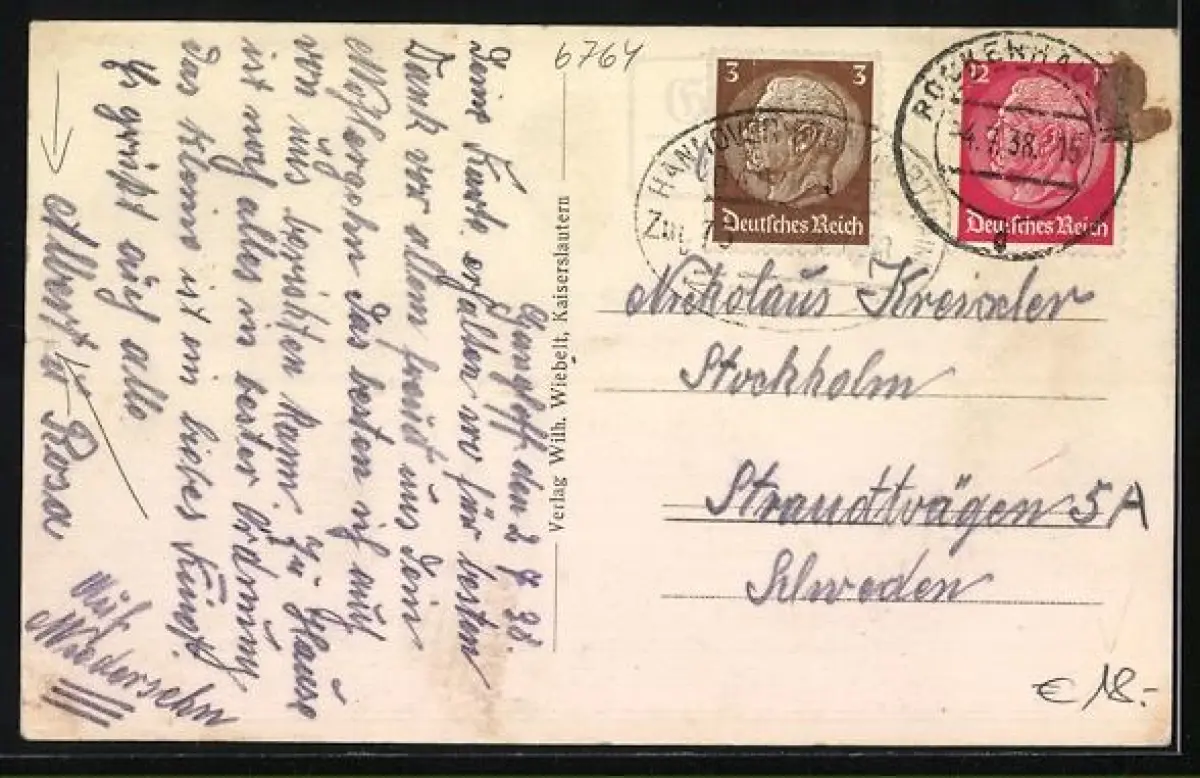 6764
den 2 7 38.
Deine Karte erhalten wo für besten
Dank vor allem freut uns Dein
Wohlergehn Das besten ich auch
von uns berichten kann. zu Hause
ist noch alles in bester Ordnung
Das kleine ist ein liebes Kind.
Es grüßt euch alle
Albert u Rosa
Auf
Wiedersehn
Verlag Wilh. Wiebelt, Kaiserslautern
3 3
Deutsches Reich
12
Deutsches Reich
HANNOVER
Zug
ROCKENHAUSEN
-4.7.38. 15
Nickolaus
Stockholm
Strandtvägen 5A
Schweden
€ 18.-